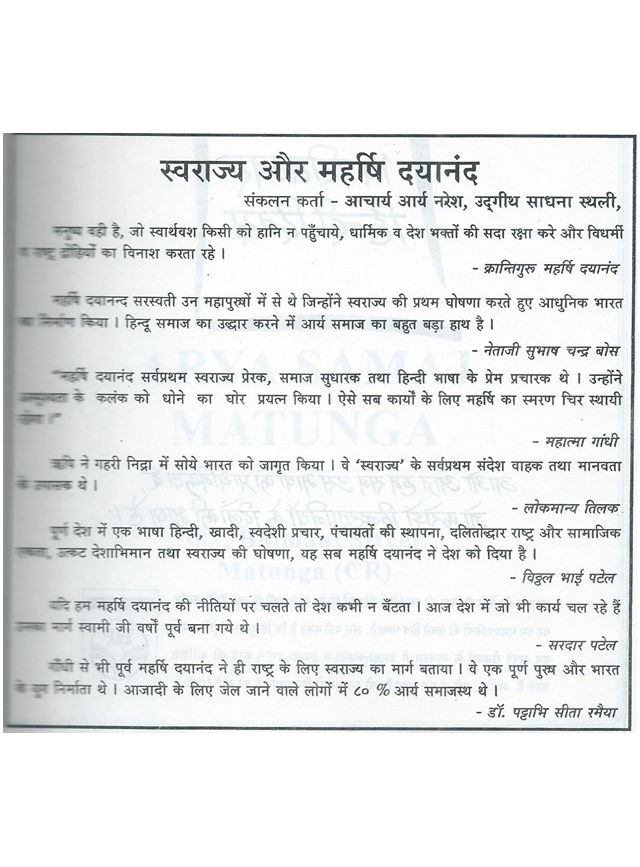 स्वराज्य और महर्षि दयानंद
संकलन कर्ता - आचार्य आर्य नरेश, उद्‌गीथ साधना स्थली,
मनुष्य वही है, जो स्वार्थवश किसी को हानि न पहुँचाये, धार्मिक व देश भक्तों की सदा रक्षा करे और विधर्मी
राष्ट्र द्रोहियों का विनाश करता रहे ।
- क्रान्तिगुरु महर्षि दयानंद
महर्षि दयानन्द सरस्वती उन महापुरुषों में से थे जिन्होंने स्वराज्य की प्रथम घोषणा करते हुए आधुनिक भारत
का निर्माण किया । हिन्दू समाज का उद्धार करने में आर्य समाज का बहुत बड़ा हाथ है ।
- नेताजी सुभाष चन्द्र बोस
"महर्षि दयानंद सर्वप्रथम स्वराज्य प्रेरक, समाज सुधारक तथा हिन्दी भाषा के प्रेम प्रचारक थे । उन्होंने
के कलंक को धोने का घोर प्रयत्न किया । ऐसे सब कार्यों के लिए महर्षि का स्मरण चिर स्थायी
रहेगा ।"
- महात्मा गांधी
ऋषि ने गहरी निद्रा में सोये भारत को जागृत किया । वे 'स्वराज्य' के सर्वप्रथम संदेश वाहक तथा मानवता
के उपासक थे ।
- लोकमान्य तिलक
पूर्ण देश में एक भाषा हिन्दी, खादी, स्वदेशी प्रचार, पंचायतों की स्थापना, दलितोद्धार राष्ट्र और सामाजिक
एकता, उत्कट देशाभिमान तथा स्वराज्य की घोषणा, यह सब महर्षि दयानंद ने देश को दिया है ।
- विठ्ठल भाई पटेल
यदि हम महर्षि दयानंद की नीतियों पर चलते तो देश कभी न बँटता । आज देश में जो भी कार्य चल रहे हैं
उनका मार्ग स्वामी जी वर्षों पूर्व बना गये थे ।
- सरदार पटेल
गाँधी से भी पूर्व महर्षि दयानंद ने ही राष्ट्र के लिए स्वराज्य का मार्ग बताया । वे एक पूर्ण पुरुष और भारत
के युग निर्माता थे । आजादी के लिए जेल जाने वाले लोगों में ८० % आर्य समाजस्थ थे ।
- डॉ. पट्टाभि सीता रमैया